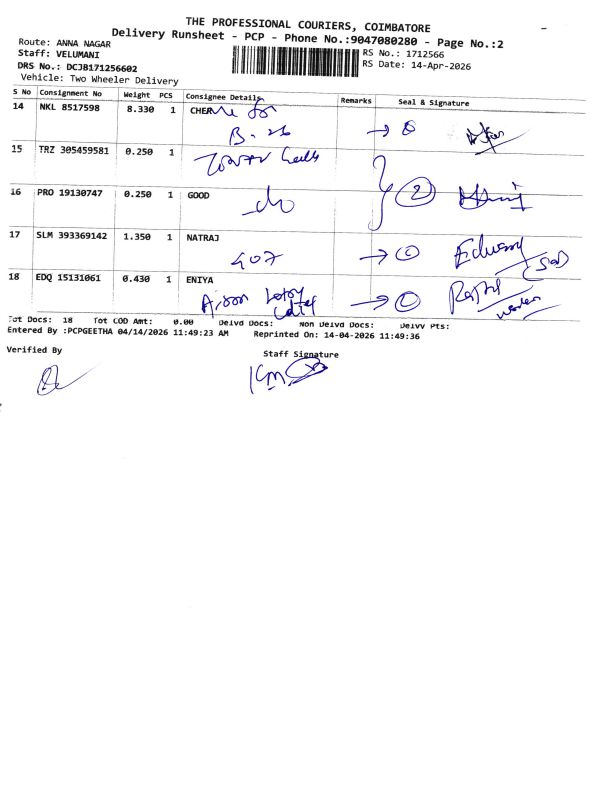 THE PROFESSIONAL COURIERS, COIMBATORE
Delivery Runsheet - PCP - Phone No.:9047080280 - Page No.:2
Route: ANNA NAGAR
Staff: VELUMANI
RS No.: 1712566
DRS No.: DCJB171256602
RS Date: 14-Apr-2026
Vehicle: Two Wheeler Delivery
S No Consignment No Weight PCS Consignee Details Remarks Seal & Signature
14 NKL 8517598 8.330 1
B-26
15 TRZ 305459581 0.250 1
16 PRO 19130747 0.250 1 GOOD
do 2
17 SLM 393369142 1.350 1 NATRAJ
407
18 EDQ 15131061 0.430 1 ENIYA
Tot Docs: 18 Tot COD Amt: 0.00 Delvd Docs: Non Delvd Docs: Delvv Pts:
Entered By :PCPGEETHA 04/14/2026 11:49:23 AM Reprinted On: 14-04-2026 11:49:36
Verified By
Staff Signature